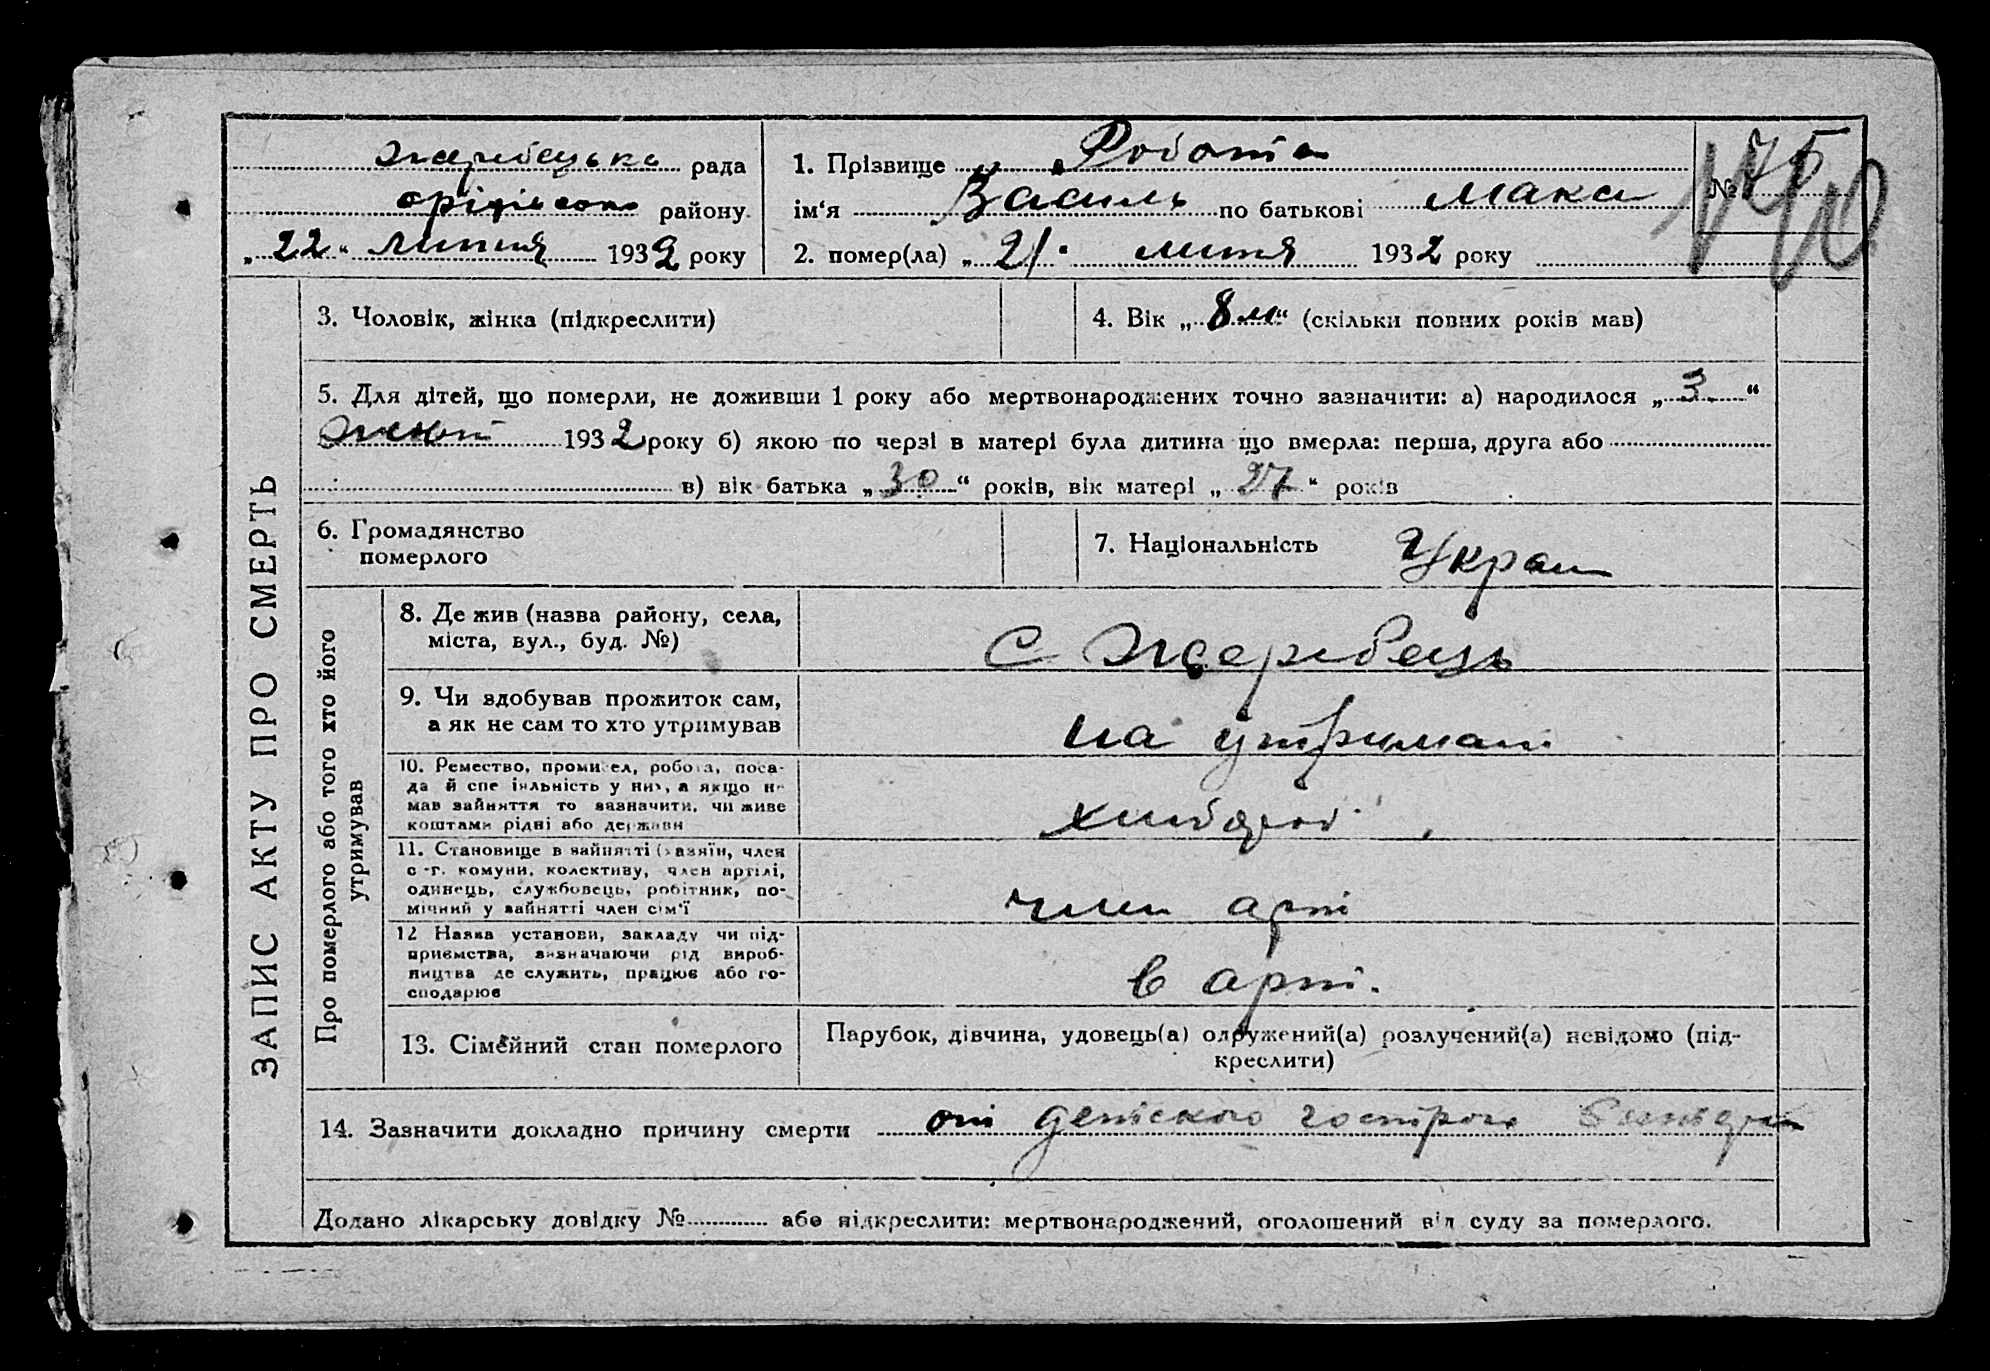 Жеребецька рада
Оріхівсок району
„22“ липня 1932 року
1. Прізвище Робота
ім‘я Василь по батькові Макс
2. помер(ла) „21“ липня 1932 року
№ 75
140
ЗАПИС АКТУ ПРО СМЕРТЬ
3. Чоловік, жінка (підкреслити)
4. Вік „8 м“ (скільки повних років мав)
5. Для дітей, що померли, не доживши 1 року або мертвонароджених точно зазначити: а) народилося „3.“
Жовт 1932 року б) якою по черзі в матері була дитина що вмерла: перша, друга або
в) вік батька „30“ років, вік матері „27“ років
6. Громадянство
померлого
7. Національність Украї
Про померлого або того хто його
утримував
8. Де жив (назва району, села,
міста, вул., буд. №)
с Жеребець
9. Чи здобував прожиток сам,
а як не сам то хто утримував
на утримані
10. Ремество, промисел, робота, поса-
да й спеціяльність у них, а якщо не
мав зайняття то зазначити, чи живе
коштами рідні або держави
хлібороб
11. Становище в зайнятті (хазяїн, член
с.-г. комуни, колективу, член артілі,
одинець, службовець, робітник, по-
мічний у зайнятті член сім‘ї
член арт
12 Назва установи, закладу чи під-
приємства, визначаючи рід вироб-
ництва де служить, працює або го-
сподарює
в арт.
13. Сімейний стан померлого
Парубок, дівчина, удовець(а) одружений(а) розлучений(а) невідомо (під-
креслити)
14. Зазначити докладно причину смерти от детского гострого
Додано лікарську довідку № або підкреслити: мертвонароджений, оголошений від суду за померлого.